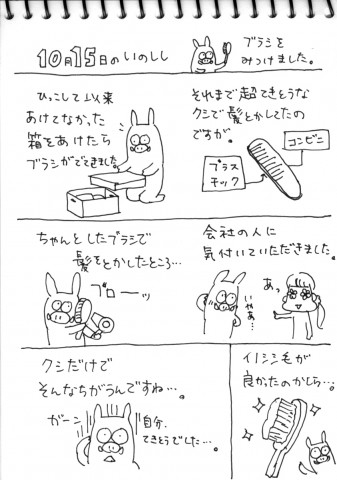 10月15日のいのしし
ブラシを
みつけました。
ひっこして以来
あけてなかった
箱をあけたら
ブラシがでてきました。
それまで超てきとうな
クシで髪とかしてたの
ですが。
コンビニ
プラス
チック
ちゃんとしたブラシで
髪をとかしたところ…
ブローッ
会社の人に
気付いていただきました。
あっ
いやあ…
クシだけで
そんなちがうんですね…。
ガーン
自分、
てきとうでした…。
イノシシ毛が
良かったのかしら…。